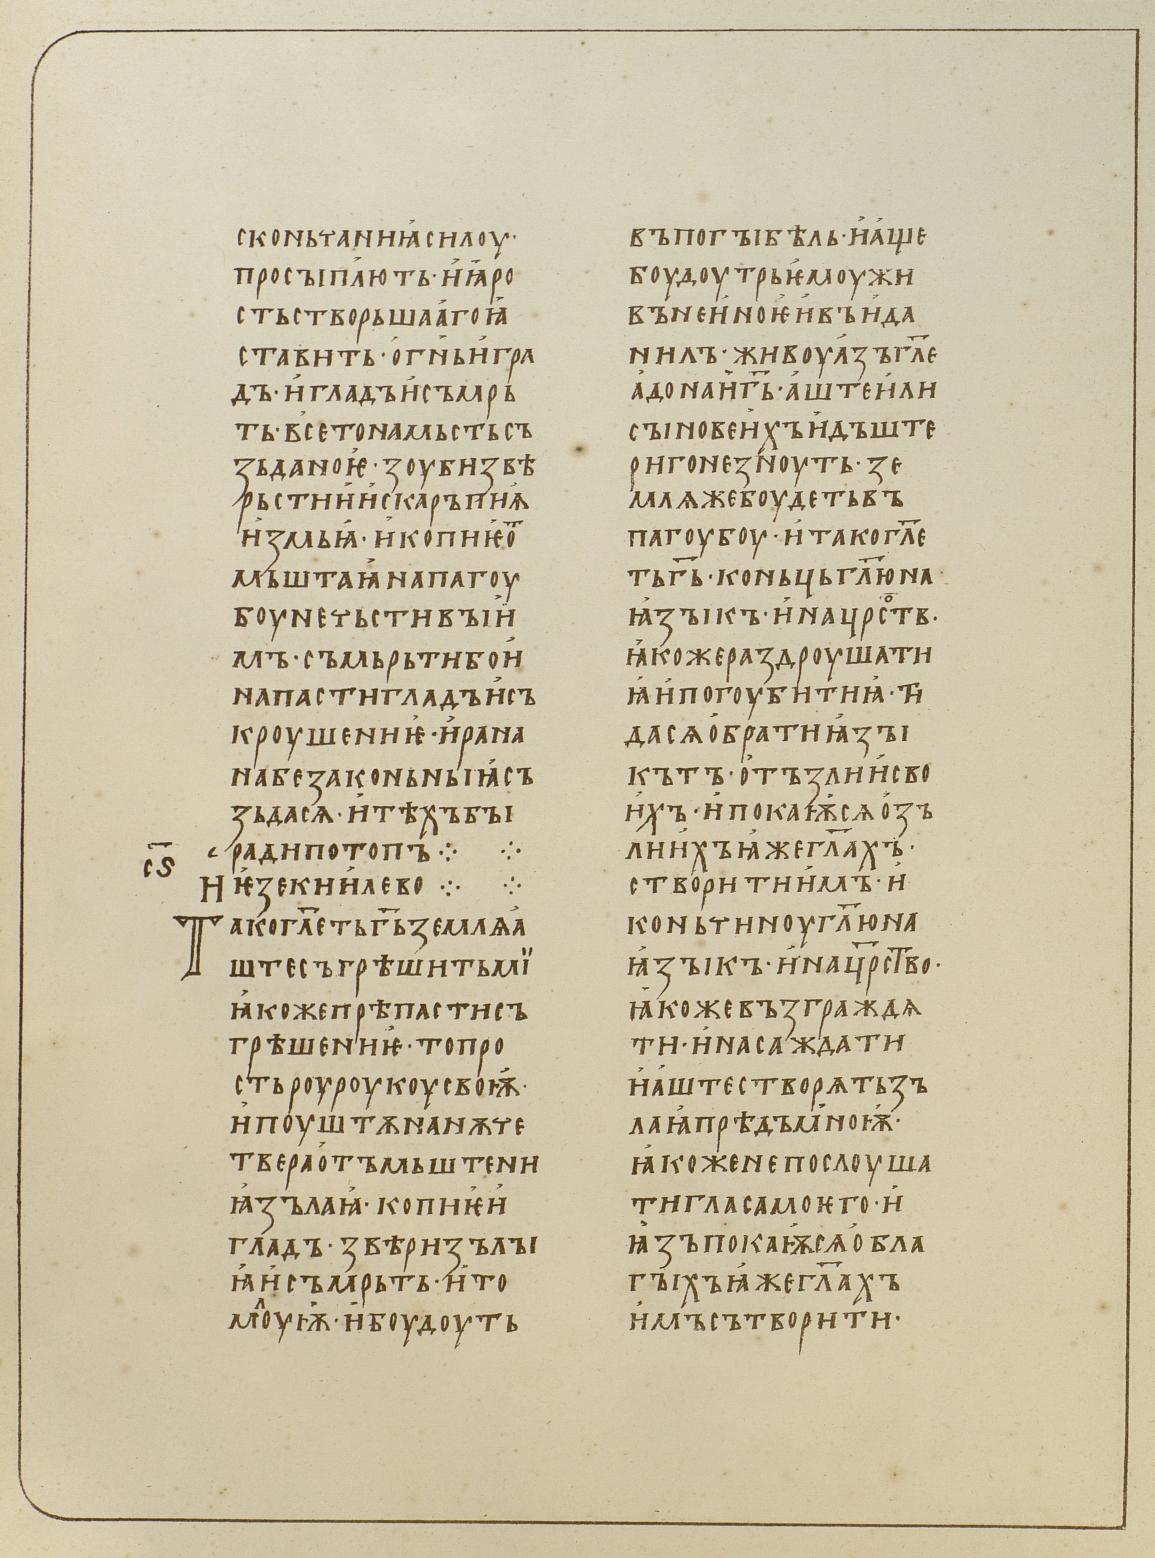 сконьчаниꙗсилоу·
просыплють·иꙗро
стьстворьшаагоꙗ
ставить·огньигра
дъ·игладъисъмрь
ть·всетонамьстьсъ
зьданоѥ·зоубизвѣ
рьстниискаръпиꙗ
измьꙗ·икопиѥѿ
мьштаꙗнапагоу
боунечьстивыи
мъ·съмьрьтибои
напастигладъисъ
кроушениѥ·ирана
набезаконьныꙗсъ
зьдасѧ·итѣхъбы
радипотопъ⁘ ⁘
с҃ѕ
Иѥзекиилево⁘ ⁘
Такогл҃етьг҃ьземлѧа
штесъгрѣшитьмї
ꙗкожепрѣпастисъ
грѣшениѥ·топро
стьроуроукоусвоѭ·
ипоуштѫнанѫче
твераотъмьштени
ꙗзълаꙗ·копиѥи
гладъ·звѣризълы
ꙗисъмрьть·ито
моуѭ·ибоудоуть
въпогыбѣль·иаще
боудоутрьѥмоужи
вънеиноѥивъида
нилъ·живоуазъгл҃е
адонаиг҃ь·аштеили
сыновеихъидъште
ригонезноуть·зе
млѧжебоудетьвъ
пагоубоу·итакогл҃е
тьг҃ь·коньцьгл҃юна
ꙗзыкъ·инацрⷭ҇тв·
ꙗкожераздроушати
ꙗипогоубитиꙗ·ти
дасѧобратиꙗзы
кътъ·отъзлиисво
ихъ·ипокаѭсѧозъ
лиихъꙗжегл҃ахъ·
створитиимъ·и
коньчиноугл҃юна
ꙗзыкъ·инац҃рс҃тво·
ꙗкожевъзграждѧ
ти·инасаждати
иаштестворѧтьзъ
лаꙗпрѣдъмноѭ·
ꙗкоженепослоуша
тигласамоѥго·и
ꙗзъпокаѭсѧобла
гыхъꙗжегл҃ахъ
имъсътворити·